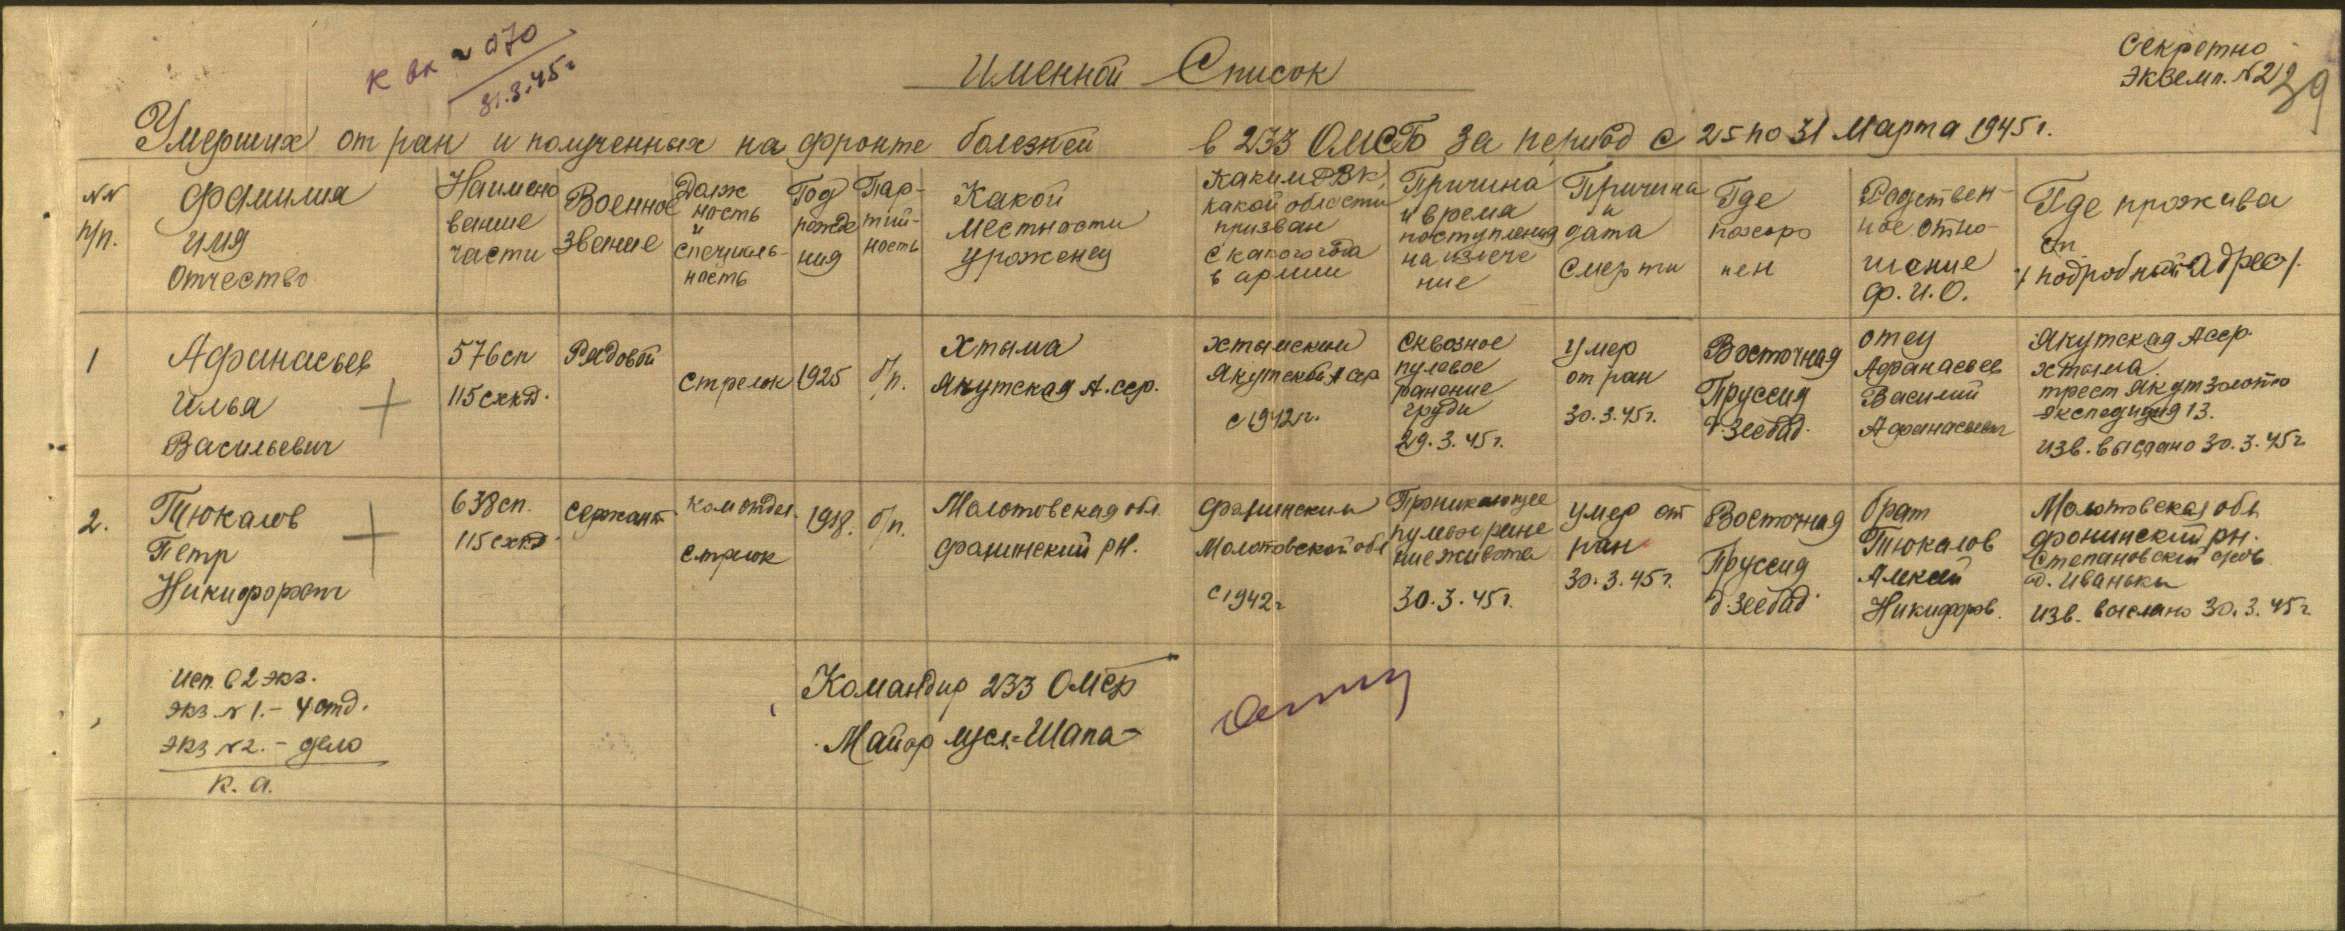 к вх ~ 070
31.3.45г
Секретно
Экземп. №2
39
Именной Список
Умерших от ран и полученных на фронте болезней в 233 ОМСБ за период с 25 по 31 Марта 1945г.
№№
п/п.
Фамилия
имя
Отчество
Наимено
вание
части
Военное
звание
Долж
ность
и
специаль-
ность
Год
рожде
ния
Пар-
тий-
ность
Какой
местности
уроженец
Каким РВК,
какой области
призван
с какого года
в армии
Причина
и время
поступления
на излече
ние
Причина
и
дата
смерти
Где
похоро
нен
Родствен-
ное отно-
шение
Ф.И.О.
Где прожива
ет
/подробный адрес/.
1
Афанасьев
Илья
Васильевич
576сп
115сккд.
Рядовой
стрелок
1925
б/п.
Хтыма
Якутская А.сср.
Хтымский
Якутской Асср
с 1942г.
Сквозное
пулевое
ранение
груди
29.3.45г.
Умер
от ран
30.3.45г.
Восточная
Пруссия
д.Зеебад.
отец
Афанасьев
Василий
Афанасьевич
Якутская Асср.
Хтыма.
трест Якутзолото
экспедиция 13.
изв. выслано 30.3.45г
2.
Тюкалов
Петр
Никифорович
638сп.
115сккд
сержант
ком отдел.
стрелок
1918.
б/п.
Молотовская обл
Фокинский рн.
Фокинским
Молотовской обл
с 1942г
Проникающее
пулевое ране
ние живота
30.3.45г.
умер от
ран
30.3.45г.
Восточная
Пруссия
д.Зеебад.
брат
Тюкалов
Алексей
Никифоров.
Молотовская обл
Фокинский рн.
Степановский
д. Иваньки
изв. выслано 30.3.45г
Исп. в 2 экз.
экз №1.- 4 отд.
экз №2.- дело
К.А.
Командир 233 ОМСБ
Майор м/сл.=Шапа-